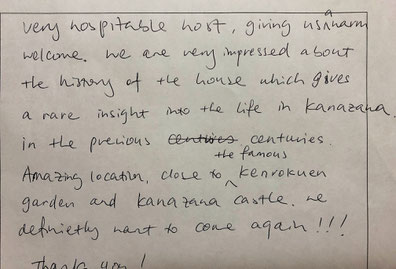 very hospitable host, giving us a warm
welcome. We are very impressed about
the history of the house which gives
a rare insight into the life in Kanazana
in the previous centuries centuries.
Amazing location, close to the famous Kenrokuen
garden and Kanazana castle. We
definietly want to come again!!!
Thank you!